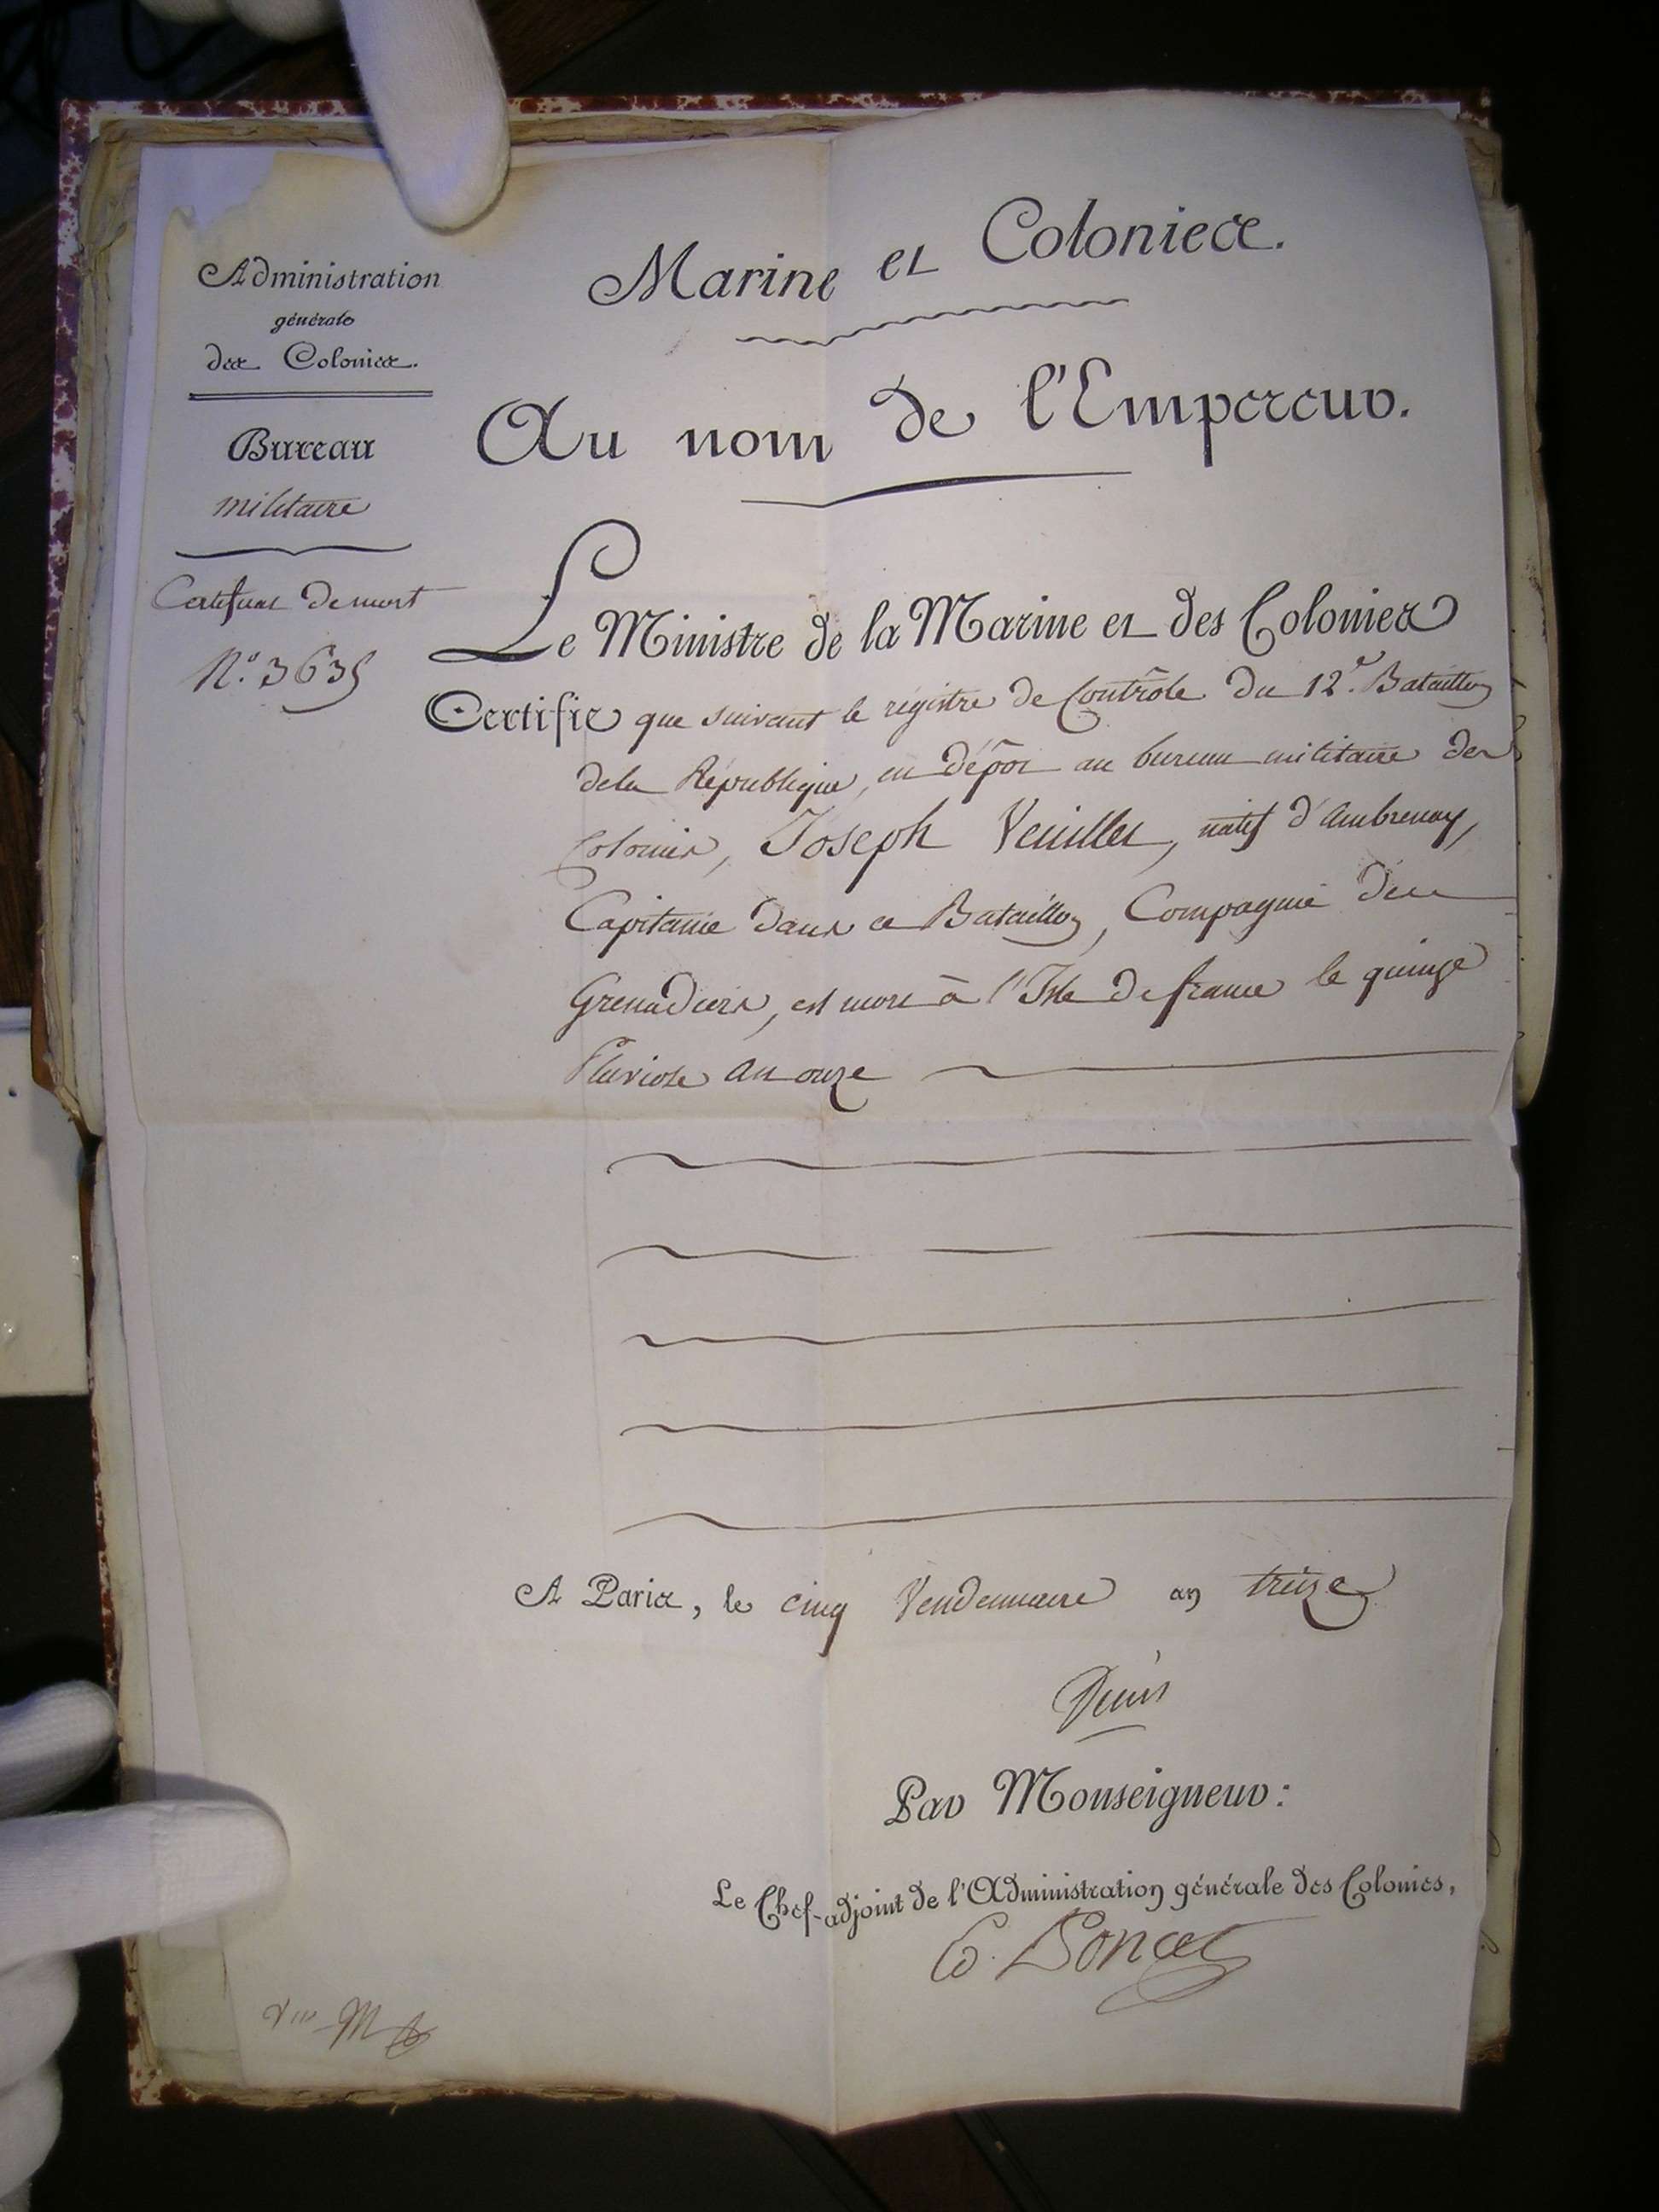 Marine et Colonies.
Administration
générale
des Colonies.
Au nom de l'Empereur.
Bureau
militaire
Certificat de mort
N.º 3635
Le Ministre de la Marine et des Colonies
Certifie que suivant le régistre de Contrôle du 12.e Bataillon
de la République, en dépôt au bureau militaire des
Colonies, Joseph Veuillet, natif d'Ambrenay,
Capitaine dans ce Bataillon, Compagnie des
Grenadiers, est mort à l'Isle de france le quinze
Pluviose an onze
A Paris, le cinq Vendemiaire an treize
Denis
Par Monseigneur:
Le Chef-adjoint de l'Administration générale des Colonies,
Poncet